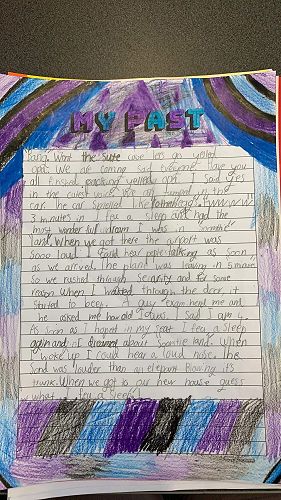 MY PAST
Bang. Went the suite case lets go yelled
opa. We are coming said everyone. Have you
all finished packing yelled opa. I said yes
in the cutest voice. We all jumped in the
car. the car smelled like
3 minutes in I fell a sleep and had the
most wonder full dream I was in
land. When we got there the airport was
sooo loud I could hear pepole talking as soon
as we arrived. The plane was leaving in 5 minutes
so we rushed through scarity and for some
reason when I walked through the door it
started to beep. A guy came held me and
he asked me how old I was. I said I am 4.
As soon as I hoped in my seat I fell a sleep
again and I dreamed about land. When
I woke up I could hear a loud nose. The
sound was louder than an elepant blowing it's
trunk. When we got to our new house guess
what I fell a sleep